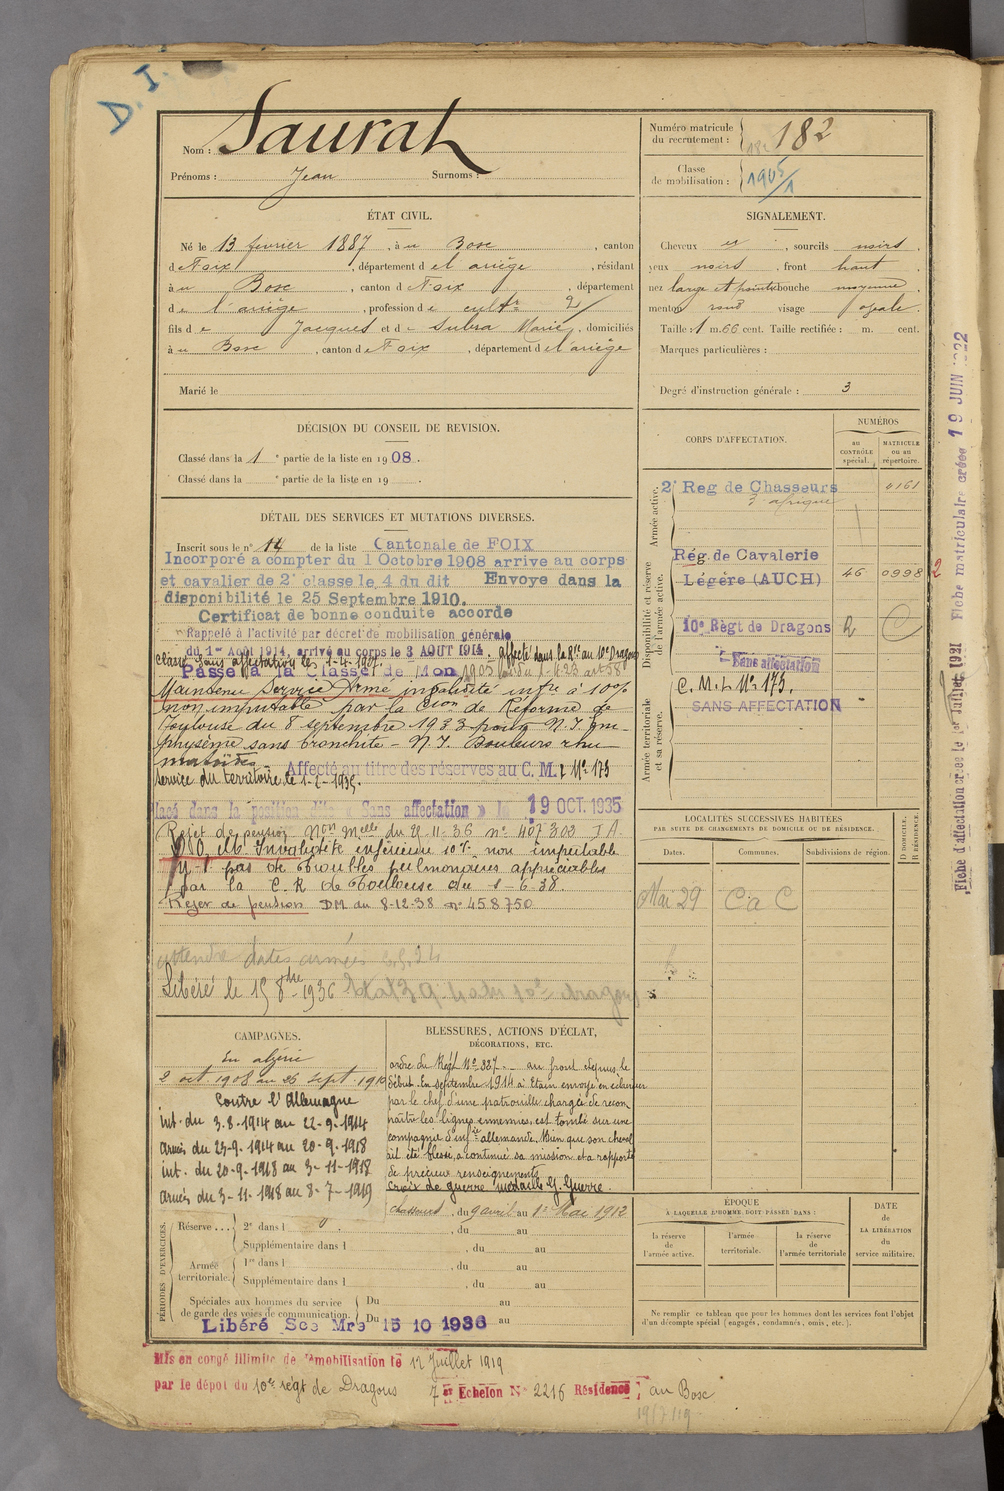 D. I.
Nom : Saurat
Prénoms : Jean Surnoms :
Numéro matricule du recrutement : 182
Classe de mobilisation : 1905/1
ÉTAT CIVIL.
Né le 13 février 1887, à u Bosc, canton
d e Foix, département d e l'ariège, résidant
à u Bosc, canton d e Foix, département
d e l'ariège, profession de cultr 2/
fils d e Jacques et d e Subra Marie, domiciliés
à u Bosc, canton d e Foix, département d e l'ariège
Marié le
SIGNALEMENT.
Cheveux et , sourcils noirs.
yeux noirs, front haut
nez large et pointu bouche moyenne.
menton rond visage ovale.
Taille : 1 m. 66 cent. Taille rectifiée : m. cent.
Marques particulières :
Degré d'instruction générale : 3
DÉCISION DU CONSEIL DE REVISION.
Classé dans la 1e partie de la liste en 1908.
Classé dans la e partie de la liste en 19 .
DÉTAIL DES SERVICES ET MUTATIONS DIVERSES.
Inscrit sous le n° 14 de la liste Cantonale de FOIX
Incorporé à compter du 1 Octobre 1908 arrive au corps
et cavalier de 2e classe le 4 du dit Envoye dans la
disponibilité le 25 Septembre 1910.
Certificat de bonne conduite accorde
Rappelé à l'activité par décret de mobilisation générale
du 1er Août 1914, arrivé au corps le 3 AOUT 1914. affecté dans la Rve au 10e Dragons
Classé sans affectation le 1-4-
Passé à la Classe de Mon 1905
Maintenu Service Armé invalidité infre à 10%
non imputable par la Cion de Réforme de
Toulouse du 8 septembre 1933 pour N. I. Em-
physème sans bronchite - N. I. Douleurs rhu-
matoïdes
Service du territoire le 1-2-1935. Affecté au titre des réserves au C. M. N° 173
lacé dans la position dite « Sans affectation » le 19 OCT. 1935
Rejet de pension Non Melle du 21-11-36 n° 407303 I A
Invalidité inférieure 10% non imputable
pas de troubles pulmonaires appréciables
par la C. R de Toulouse du 1-6-38.
Rejet de pension DM du 8-12-38 n° 458750
Libéré le 15 8bre 1936
CORPS D'AFFECTATION.
NUMÉROS
au CONTRÔLE spécial.
MATRICULE ou au répertoire.
Armée active.
2e Reg de Chasseurs 4161
d'afrique
Disponibilité et réserve de l'armée active.
Rég. de Cavalerie
Légère (AUCH) 46 0998 2
10e Règt de Dragons 2
Sans affectation
Armée territoriale et sa réserve.
C. M. L N° 173.
SANS AFFECTATION
LOCALITÉS SUCCESSIVES HABITÉES
PAR SUITE DE CHANGEMENTS DE DOMICILE OU DE RÉSIDENCE.
Dates. Communes. Subdivisions de région. D DOMICILE. R RÉSIDENCE.
Mai 29 C a C
CAMPAGNES.
En algérie
2 oct. 1908 au 26 sept. 1910
Contre l'Allemagne
int. du 3-8-1914 au 22-9-1914
Armées du 23-9-1914 au 20-9-1918
int. du 20-9-1918 au 3-11-1918
Armées du 3-11-1918 au 8-7-1919
BLESSURES, ACTIONS D'ÉCLAT,
DÉCORATIONS, ETC.
ordre du Régt N° 327 - au front depuis le
début. En septembre 1914 à Etain envoyé en éclaireur
par le chef d'une patrouille chargée de recon-
naître les lignes ennemies, est tombé sur une
compagnie d'infrie allemande. Bien que son cheval
ait été blessé, a continué sa mission et a rapporté
de précieux renseignements
Croix de guerre Médaille G. Guerre.
PÉRIODES D'EXERCICES.
Réserve ... 2e dans l , du 9 avril au 1er Mai 1912
Supplémentaire dans l , du au
Armée territoriale. 1re dans l , du au
Supplémentaire dans l , du au
Spéciales aux hommes du service de garde des voies de communication. Du au
Du au
Libéré Sce Mre 15 10 1936
ÉPOQUE
À LAQUELLE L'HOMME DOIT PASSER DANS :
la réserve de l'armée active.
l'armée territoriale.
la réserve de l'armée territoriale
DATE de LA LIBÉRATION du service militaire.
Ne remplir ce tableau que pour les hommes dont les services font l'objet
d'un décompte spécial (engagés, condamnés, omis, etc.).
Mis en congé illimité de démobilisation le 12 Juillet 1919
par le dépôt du 10e régt de Dragons 7e Echelon N° 2216 Résidence au Bosc
Fiche d'affectation créée le 1er Juillet 1921 Fiche matriculaire créée 19 JUIN 1922